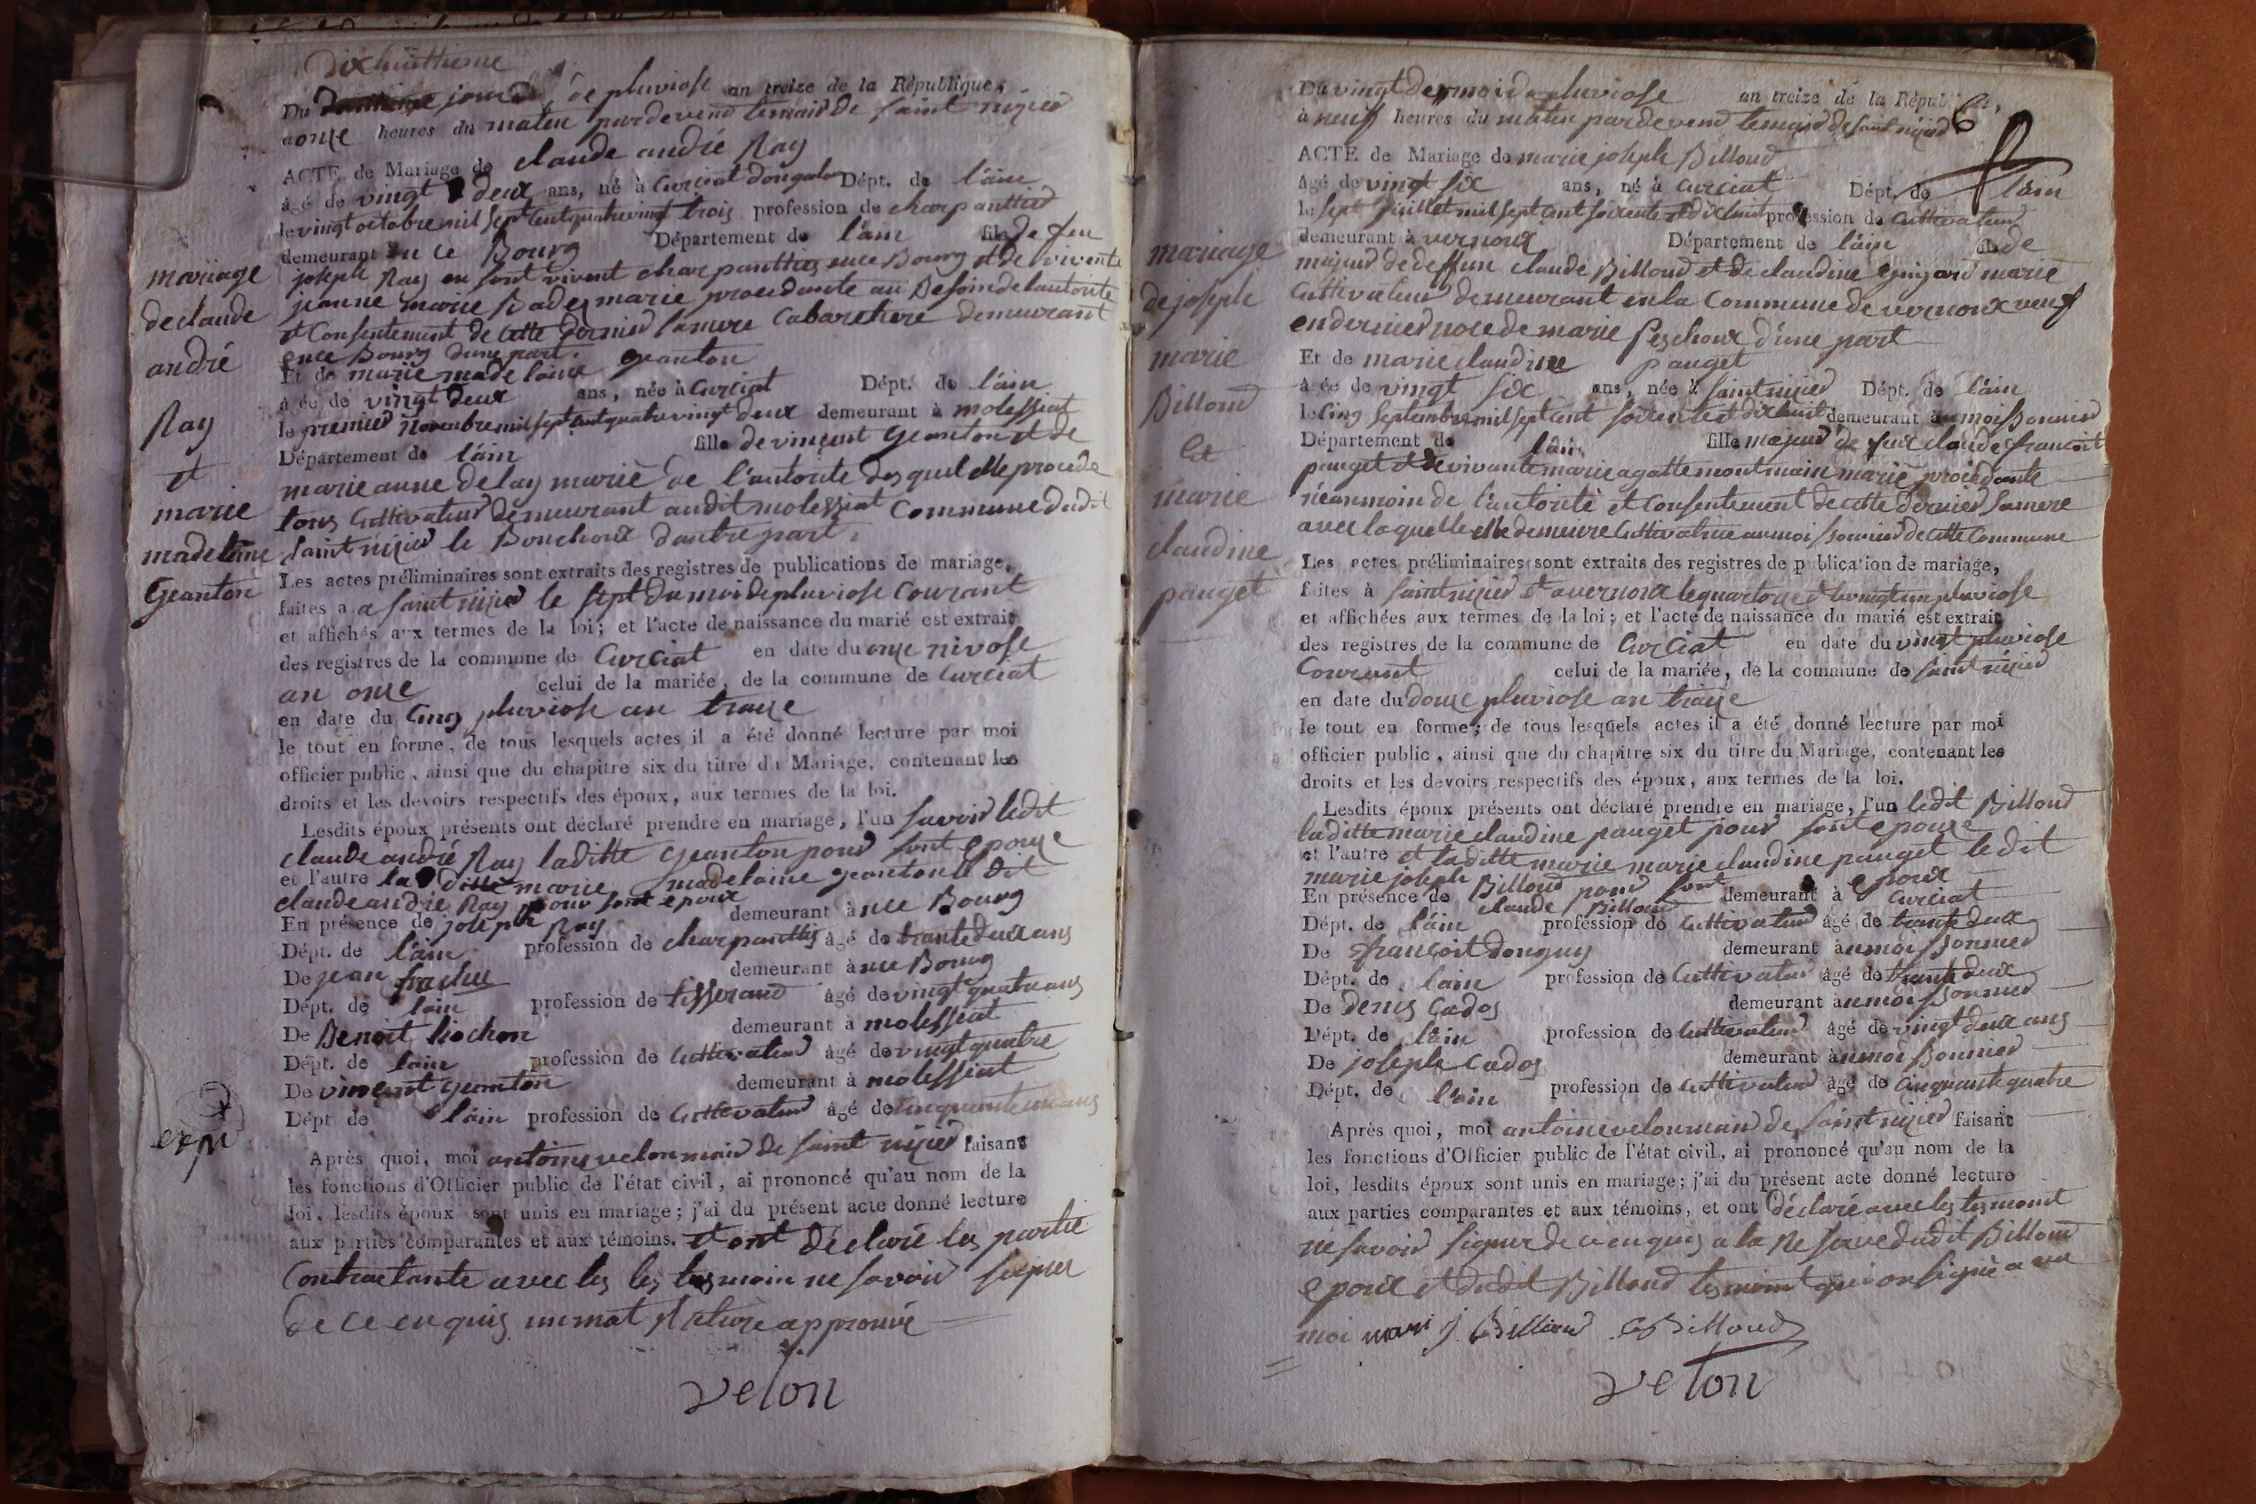 Dixhuittieme
Du jour de pluviose an treize de la République,
a onze heures du matin pardevend lemaird de saint nizied
ACTE de Mariage de claude andré Ray
âgé de vingt deux ans, né à Curciat dongalon Dépt. de l'ain
le vingt octobre mil sept cent quatre vingt trois profession de charpanttied
demeurant en ce Bourg Département de l'ain fils de feu
joseph Ray en sont vivent charpanttied en ce Bourg et de vivente
jeanne marie Badez marie procedante au Besoin de lautorite
et Consentement de cette dernied samere Cabaretiere demeurant
en ce Bourg dune part.
Et de marie madelaine geanton
âgée de vingt deux ans, née à Curciat Dépt. de l'ain
le premied Novembre mil sept cent quatre vingt deux demeurant à molessiat
Département de l'ain fille de vincent geanton et de
marie anne delay marié de l'autorite desquel elle procede
tous Cultivateur demeurant audit molessiat Commune dudit
saint nizied le Bouchoux dautre part,
Les actes préliminaires sont extraits des registres de publications de mariage,
faites a a saint nizied le sept du moi de pluviose Courant
et affichés aux termes de la loi; et l'acte de naissance du marié est extrait
des registres de la commune de Curciat en date du onze nivose
an onze celui de la mariée, de la commune de Curciat
en date du Cinq pluviose an traize
le tout en forme, de tous lesquels actes il a été donné lecture par moi
officier public, ainsi que du chapitre six du titre du Mariage, contenant les
droits et les devoirs respectifs des époux, aux termes de la loi.
Lesdits époux présents ont déclaré prendre en mariage, l'un savoir ledit
claude andré Ray laditte geanton pour sont epouze
et l'autre la ditte marie madelaine geanton le dit
claude andre Ray pour sont epoux
En présence de joseph Ray demeurant à en ce Bourg
Dépt. de l'ain profession de charpanttied âgé de trante deux ans
De jean demeurant à en ce Bourg
Dépt. de l'ain profession de tisserand âgé de vingt quatre ans
De Benoit liochon demeurant à molessiat
Dépt. de l'ain profession de Cultivateur âgé de vingt quatre
De vincent geanton demeurant à molessiat
Dépt de l'ain profession de Cultivateur âgé de cinquante un ans
Après quoi, moi antoine velon maird de saint nizied faisant
les fonctions d'Officier public de l'état civil, ai prononcé qu'au nom de la
loi, lesdits époux sont unis en mariage; j'ai du présent acte donné lecture
aux parties comparantes et aux témoins. et ont déclaré les partie
Contractante avec les les tesmoin ne savoir signer
de ce enquis un mot Rature approuvé
velon
mariage
de claude
andré
Ray
et
marie
madelaine
Geanton
exp
Du vingt de moi de pluviose an treize de la Républ
6
à neuf heures du matin pardevend lemaird de saint nizied
ACTE de Mariage de marie joseph Billoud
âgé de vingt six ans, né à Curciat Dépt. de l'ain
le sept juillet mil sept cent soixente et dix huit profession de Cultivateur
demeurant à vernoux Département de l'ain fils de
majeur de deffun claude Billoud et de claudine guigard marie
Cultivateur demeurant en la Commune de vernoux veuf
en dernied noce de marie Peschoux d'une part
Et de marie claudine pauget
âgée de vingt six ans, née à saint nizied Dépt. de l'ain
le Cinq septembre mil sept cent soixente et dix huit demeurant au moissonnied
Département de l'ain fille majeur de feux claude francoit
pauget et de vivante marie agatte montmain marié procedante
néanmoin de l'autorité et Consentement de cette dernied samere
avec laquelle elle demeure Cultivatrice au moissonnied de cette Commune
Les actes préliminaires sont extraits des registres de publication de mariage,
faites à saint nizied et a vernoux le quartorze et le vingt un pluviose
et affichées aux termes de la loi; et l'acte de naissance du marié est extrait
des registres de la commune de Curciat en date du vingt pluviose
Courent celui de la mariée, de la commune de saint nizied
en date du douze pluviose an traize
le tout en forme; de tous lesquels actes il a été donné lecture par moi
officier public, ainsi que du chapitre six du titre du Mariage, contenant les
droits et les devoirs respectifs des époux, aux termes de la loi.
Lesdits époux présents ont déclaré prendre en mariage, l'un ledit Billoud
laditte marie claudine pauget pour sont epouze
et l'autre et laditte marie marie claudine pauget ledit
marie joseph Billoud pour sont epoux
En présence de claude Billoud demeurant à Curciat
Dépt. de l'ain profession de Cultivateur âgé de trante deux
De francoit donguy demeurant à au moissonnied
Dépt. de l'ain profession de Cultivateur âgé de trante deux
De denis Cados demeurant au moissonnied
Dépt. de l'ain profession de Cultivateur âgé de vingt deux ans
De joseph Cados demeurant à au moissonnied
Dépt. de l'ain profession de Cultivateur âgé de Cinquante quatre
Après quoi, moi antoine velon maird de saint nizied faisant
les fonctions d'Officier public de l'état civil, ai prononcé qu'au nom de la
loi, lesdits époux sont unis en mariage; j'ai du présent acte donné lecture
aux parties comparantes et aux témoins, et ont déclaré avec les tesmoint
ne savoir signer de ce enquis a la Reserve dudit Billoud
epoux et dudit Billoud tesmoint qui on signé avec
moi mari j. Billioud C Billoud
velon
mariage
de joseph
marie
Billoud
et
marie
claudine
pauget